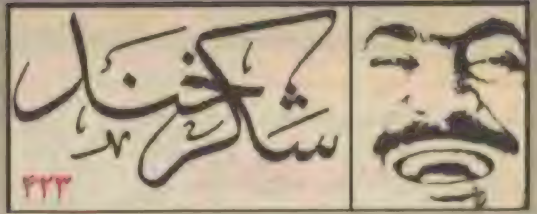 شکرخند
۴۲۳